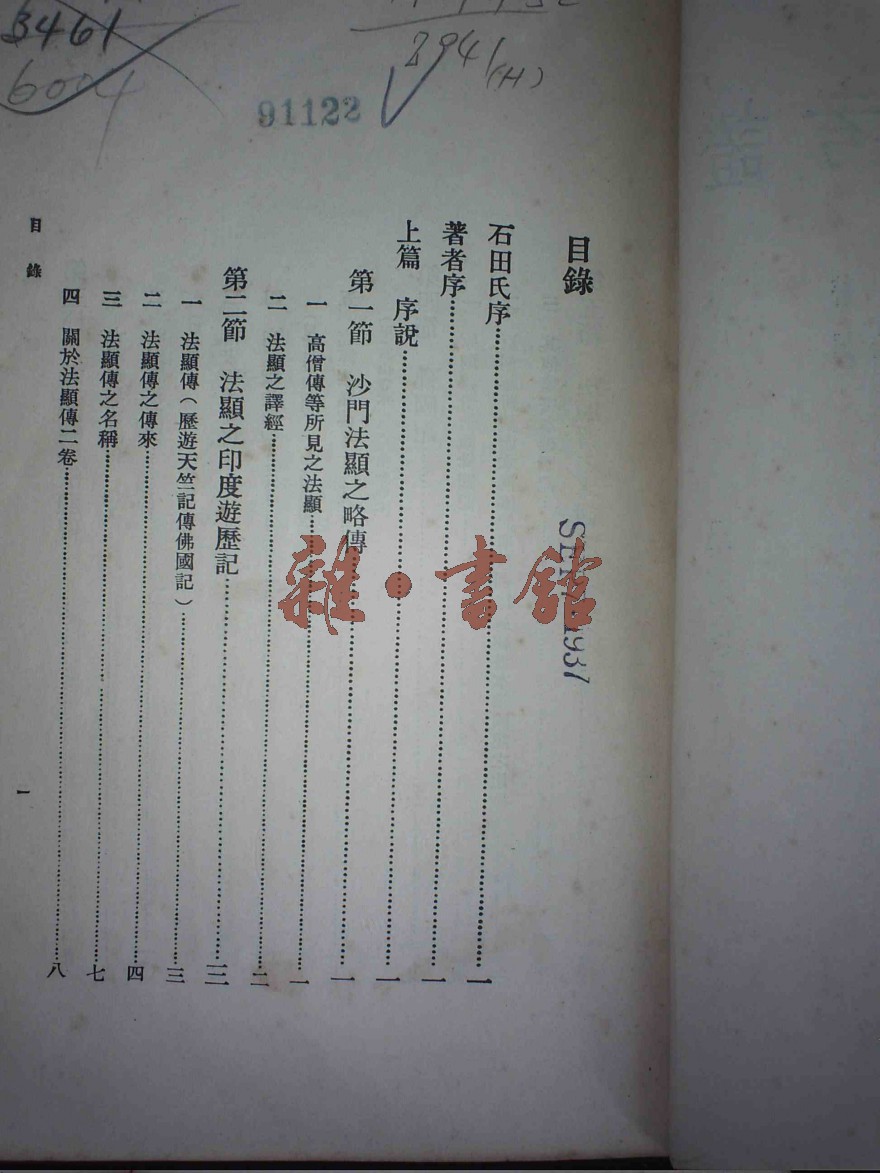 3461
6004
2941
(H)
91122
目錄
石田氏序……一
著者序……一
上篇 序說……一
第一節 沙門法顯之略傳……一
一 高僧傳等所見之法顯……一
二 法顯之譯經……二
第二節 法顯之印度遊歷記……三
一 法顯傳(歷遊天竺記傳佛國記)……三
二 法顯傳之傳來……四
三 法顯傳之名稱……七
四 關於法顯傳二卷……八
目錄
一
1937
雜·書館
證